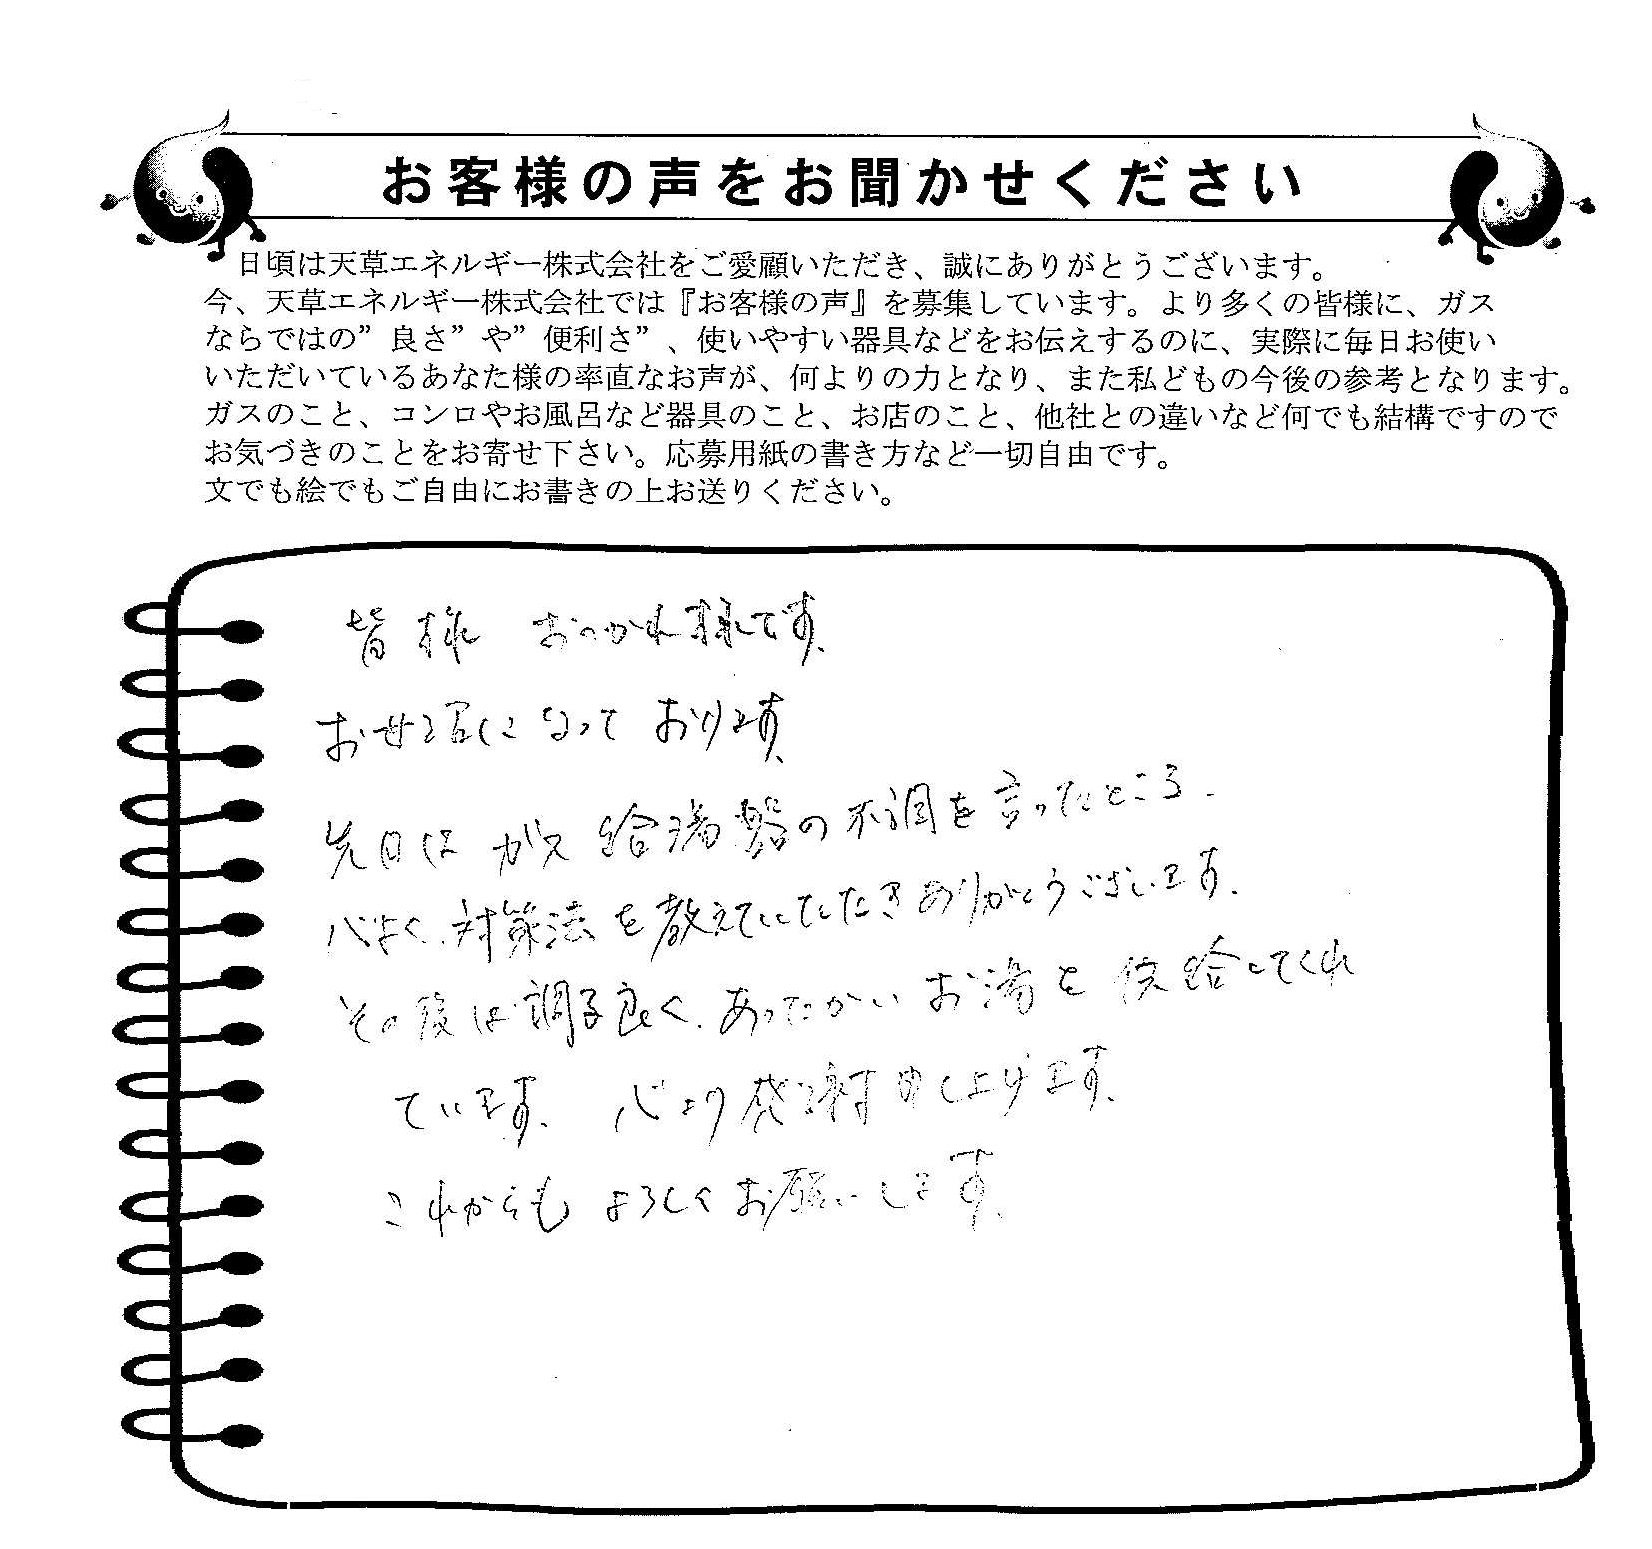 お客様の声をお聞かせください
日頃は天草エネルギー株式会社をご愛顧いただき、誠にありがとうございます。
今、天草エネルギー株式会社では『お客様の声』を募集しています。より多くの皆様に、ガス
ならではの”良さ”や”便利さ”、使いやすい器具などをお伝えするのに、実際に毎日お使い
いただいているあなた様の率直なお声が、何よりの力となり、また私どもの今後の参考となります。
ガスのこと、コンロやお風呂など器具のこと、お店のこと、他社との違いなど何でも結構ですので
お気づきのことをお寄せ下さい。応募用紙の書き方など一切自由です。
文でも絵でもご自由にお書きの上お送りください。
皆様 おつかれ様です。
お世話になっております。
先日は ガス給湯器の不調を言ったところ、
心よく、対策法を教えていただきありがとうございます。
その後は調子良く、あったかいお湯を供給してくれ
ています。心より感謝申し上げます。
これからもよろしくお願いします。